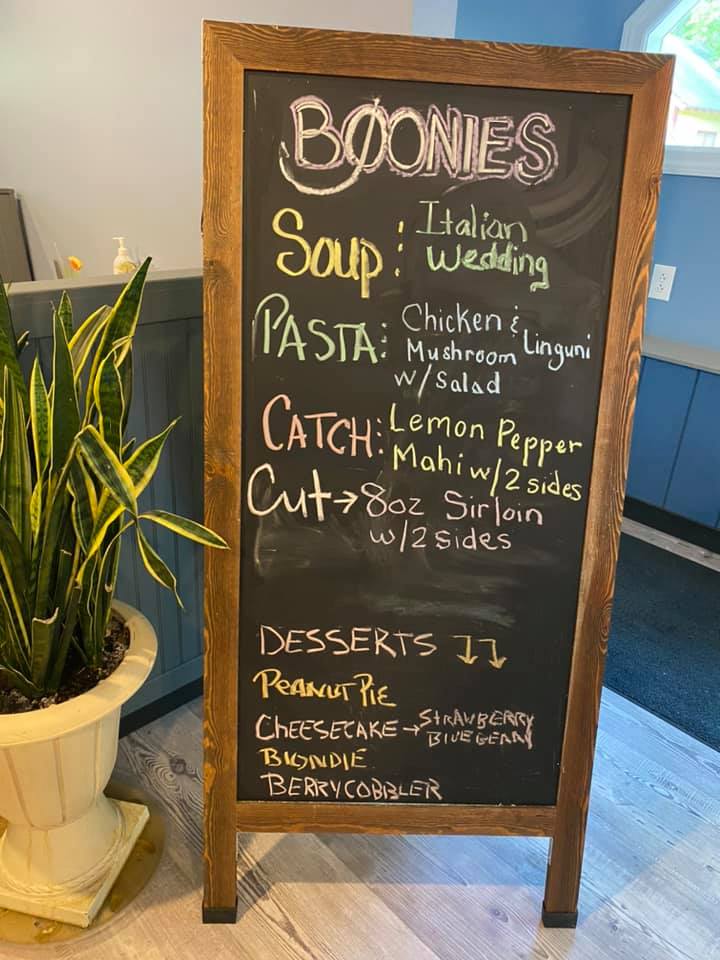 BØONIES
Soup: Italian
Wedding
PASTA: Chicken &
Mushroom Linguni
w/ Salad
CATCH: Lemon Pepper
Mahi w/ 2 sides
Cut → 8oz Sirloin
w/ 2 sides
DESSERTS ↴↴
PEANUT PIE
CHEESECAKE → STRAWBERRY
BLONDIE
BERRY COBBLER